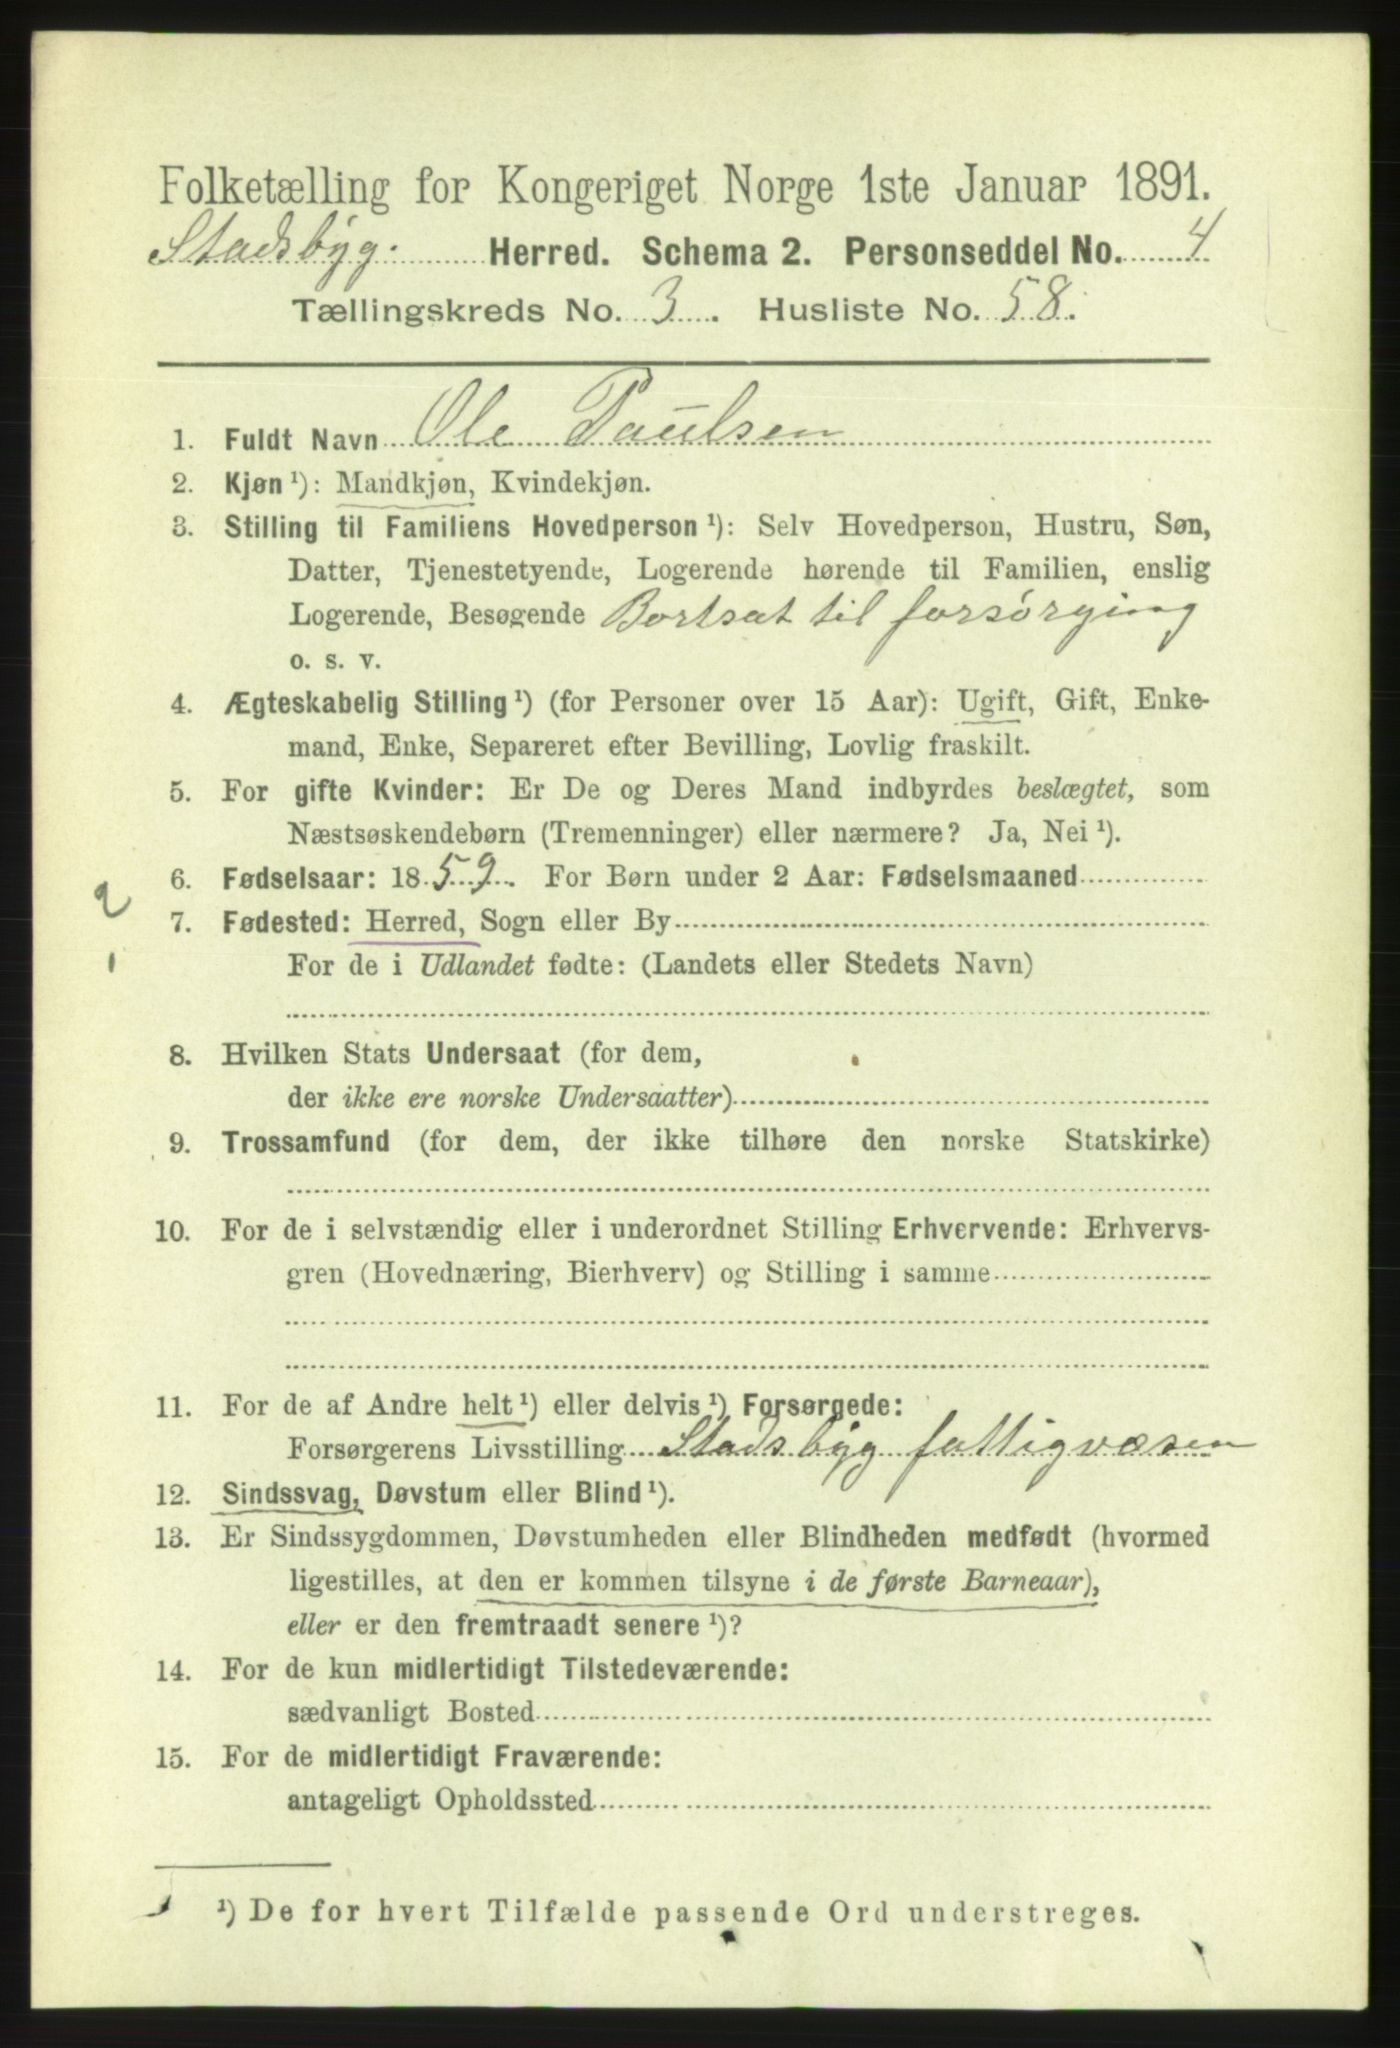 Folketælling for Kongeriget Norge 1ste Januar 1891.
Stadsbyg. Herred. Schema 2. Personseddel No. 4
Tællingskreds No. 3. Husliste No. 58.
1. Fuldt Navn Ole Paulsen
2. Kjøn ¹): Mandkjøn, Kvindekjøn.
3. Stilling til Familiens Hovedperson ¹): Selv Hovedperson, Hustru, Søn,
Datter, Tjenestetyende, Logerende hørende til Familien, enslig
Logerende, Besøgende Bortsat til forsørging
o. s. v.
4. Ægteskabelig Stilling ¹) (for Personer over 15 Aar): Ugift, Gift, Enke-
mand, Enke, Separeret efter Bevilling, Lovlig fraskilt.
5. For gifte Kvinder: Er De og Deres Mand indbyrdes beslægtet, som
Næstsøskendebørn (Tremenninger) eller nærmere? Ja, Nei ¹).
6. Fødselsaar: 1859. For Børn under 2 Aar: Fødselsmaaned
2
7. Fødested: Herred, Sogn eller By
1
For de i Udlandet fødte: (Landets eller Stedets Navn)
8. Hvilken Stats Undersaat (for dem,
der ikke ere norske Undersaatter)
9. Trossamfund (for dem, der ikke tilhøre den norske Statskirke)
10. For de i selvstændig eller i underordnet Stilling Erhvervende: Erhvervs-
gren (Hovednæring, Bierhverv) og Stilling i samme
11. For de af Andre helt ¹) eller delvis ¹) Forsørgede:
Forsørgerens Livsstilling Stadsbyg fattigvæsen
12. Sindssvag, Døvstum eller Blind ¹).
13. Er Sindssygdommen, Døvstumheden eller Blindheden medfødt (hvormed
ligestilles, at den er kommen tilsyne i de første Barneaar),
eller er den fremtraadt senere ¹)?
14. For de kun midlertidigt Tilstedeværende:
sædvanligt Bosted
15. For de midlertidigt Fraværende:
antageligt Opholdssted
¹) De for hvert Tilfælde passende Ord understreges.